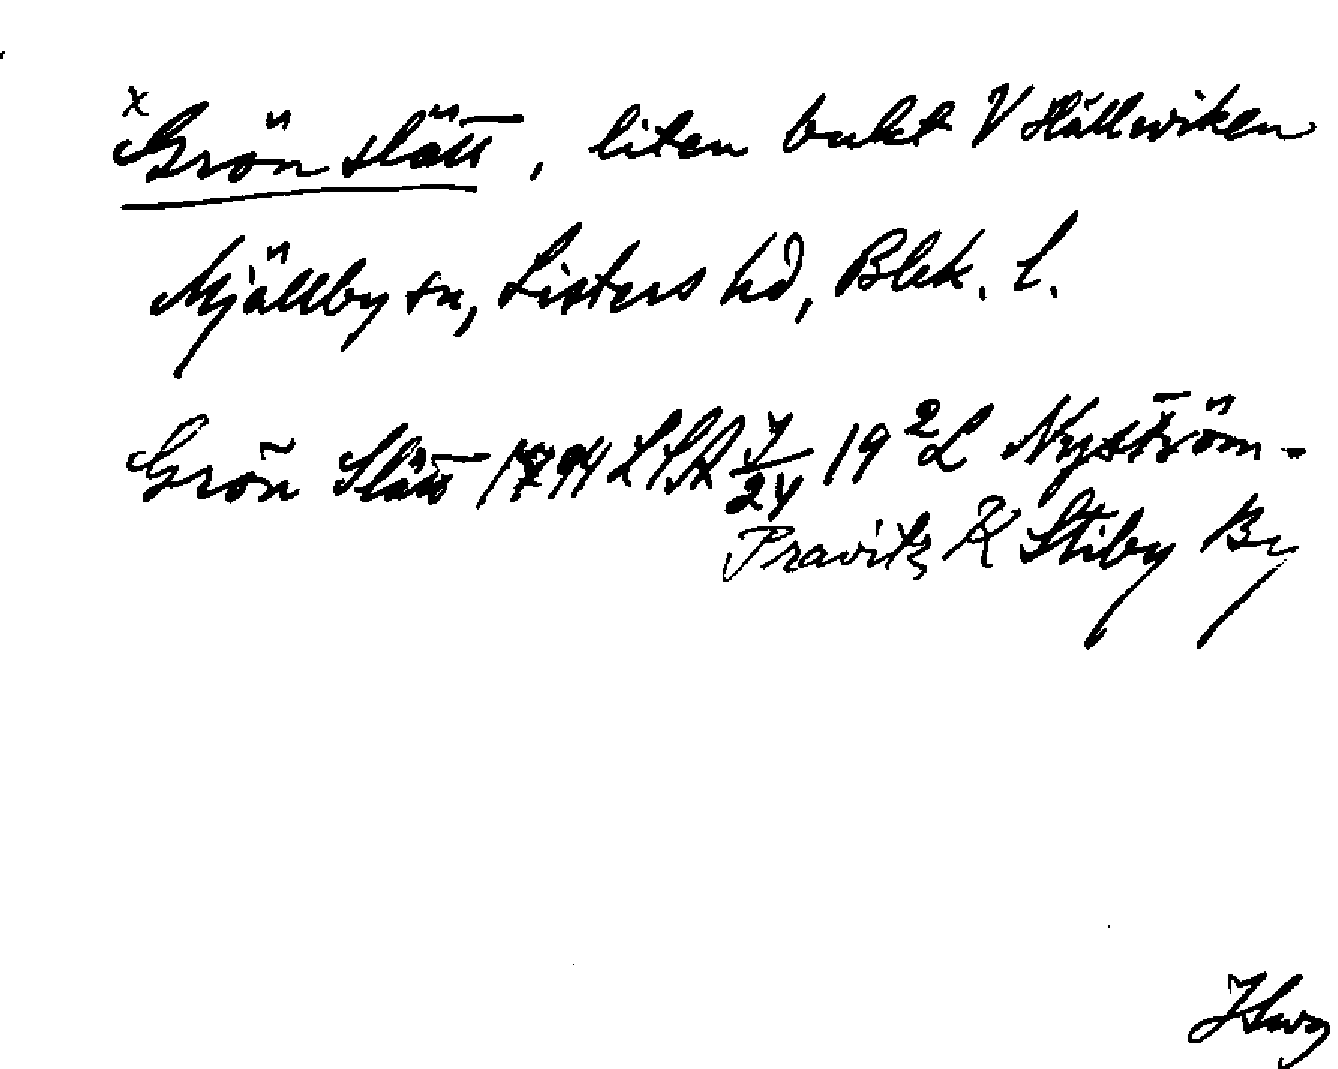 x
Grön slätt, liten bukt V Hällevviken
Mjällby sn, Listers hd, Blek. l.
Grön Slätt 1794 LSA Nyström-
Pravitz K Stiby By